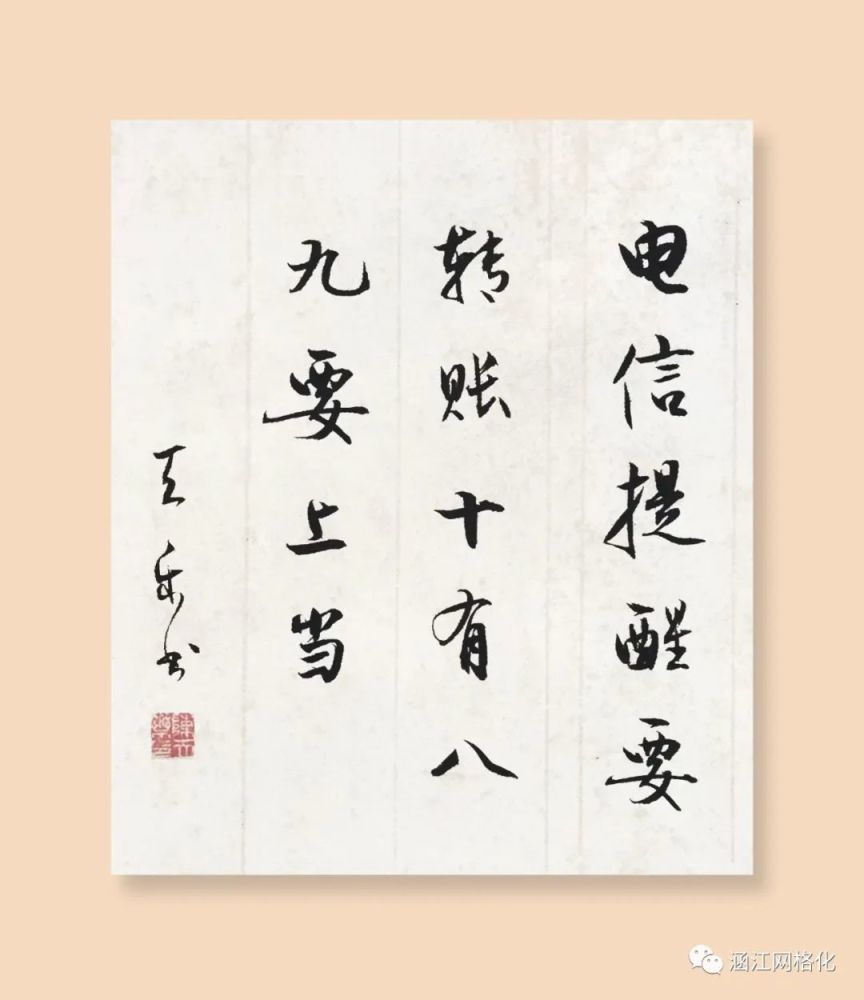 电信提醒要
转账十有八
九要上当
天乐书
涵江网格化